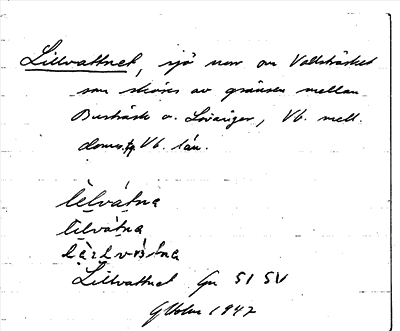 Lillvattnet, sjö norr om Vallsträsket
som skäres av gränsen mellan
Burträsk o. Lövånger, Vb. mell.
doms. Vb. län.
lelvátna
lilvátna
Lillvattnet Gn 51 SV
1947